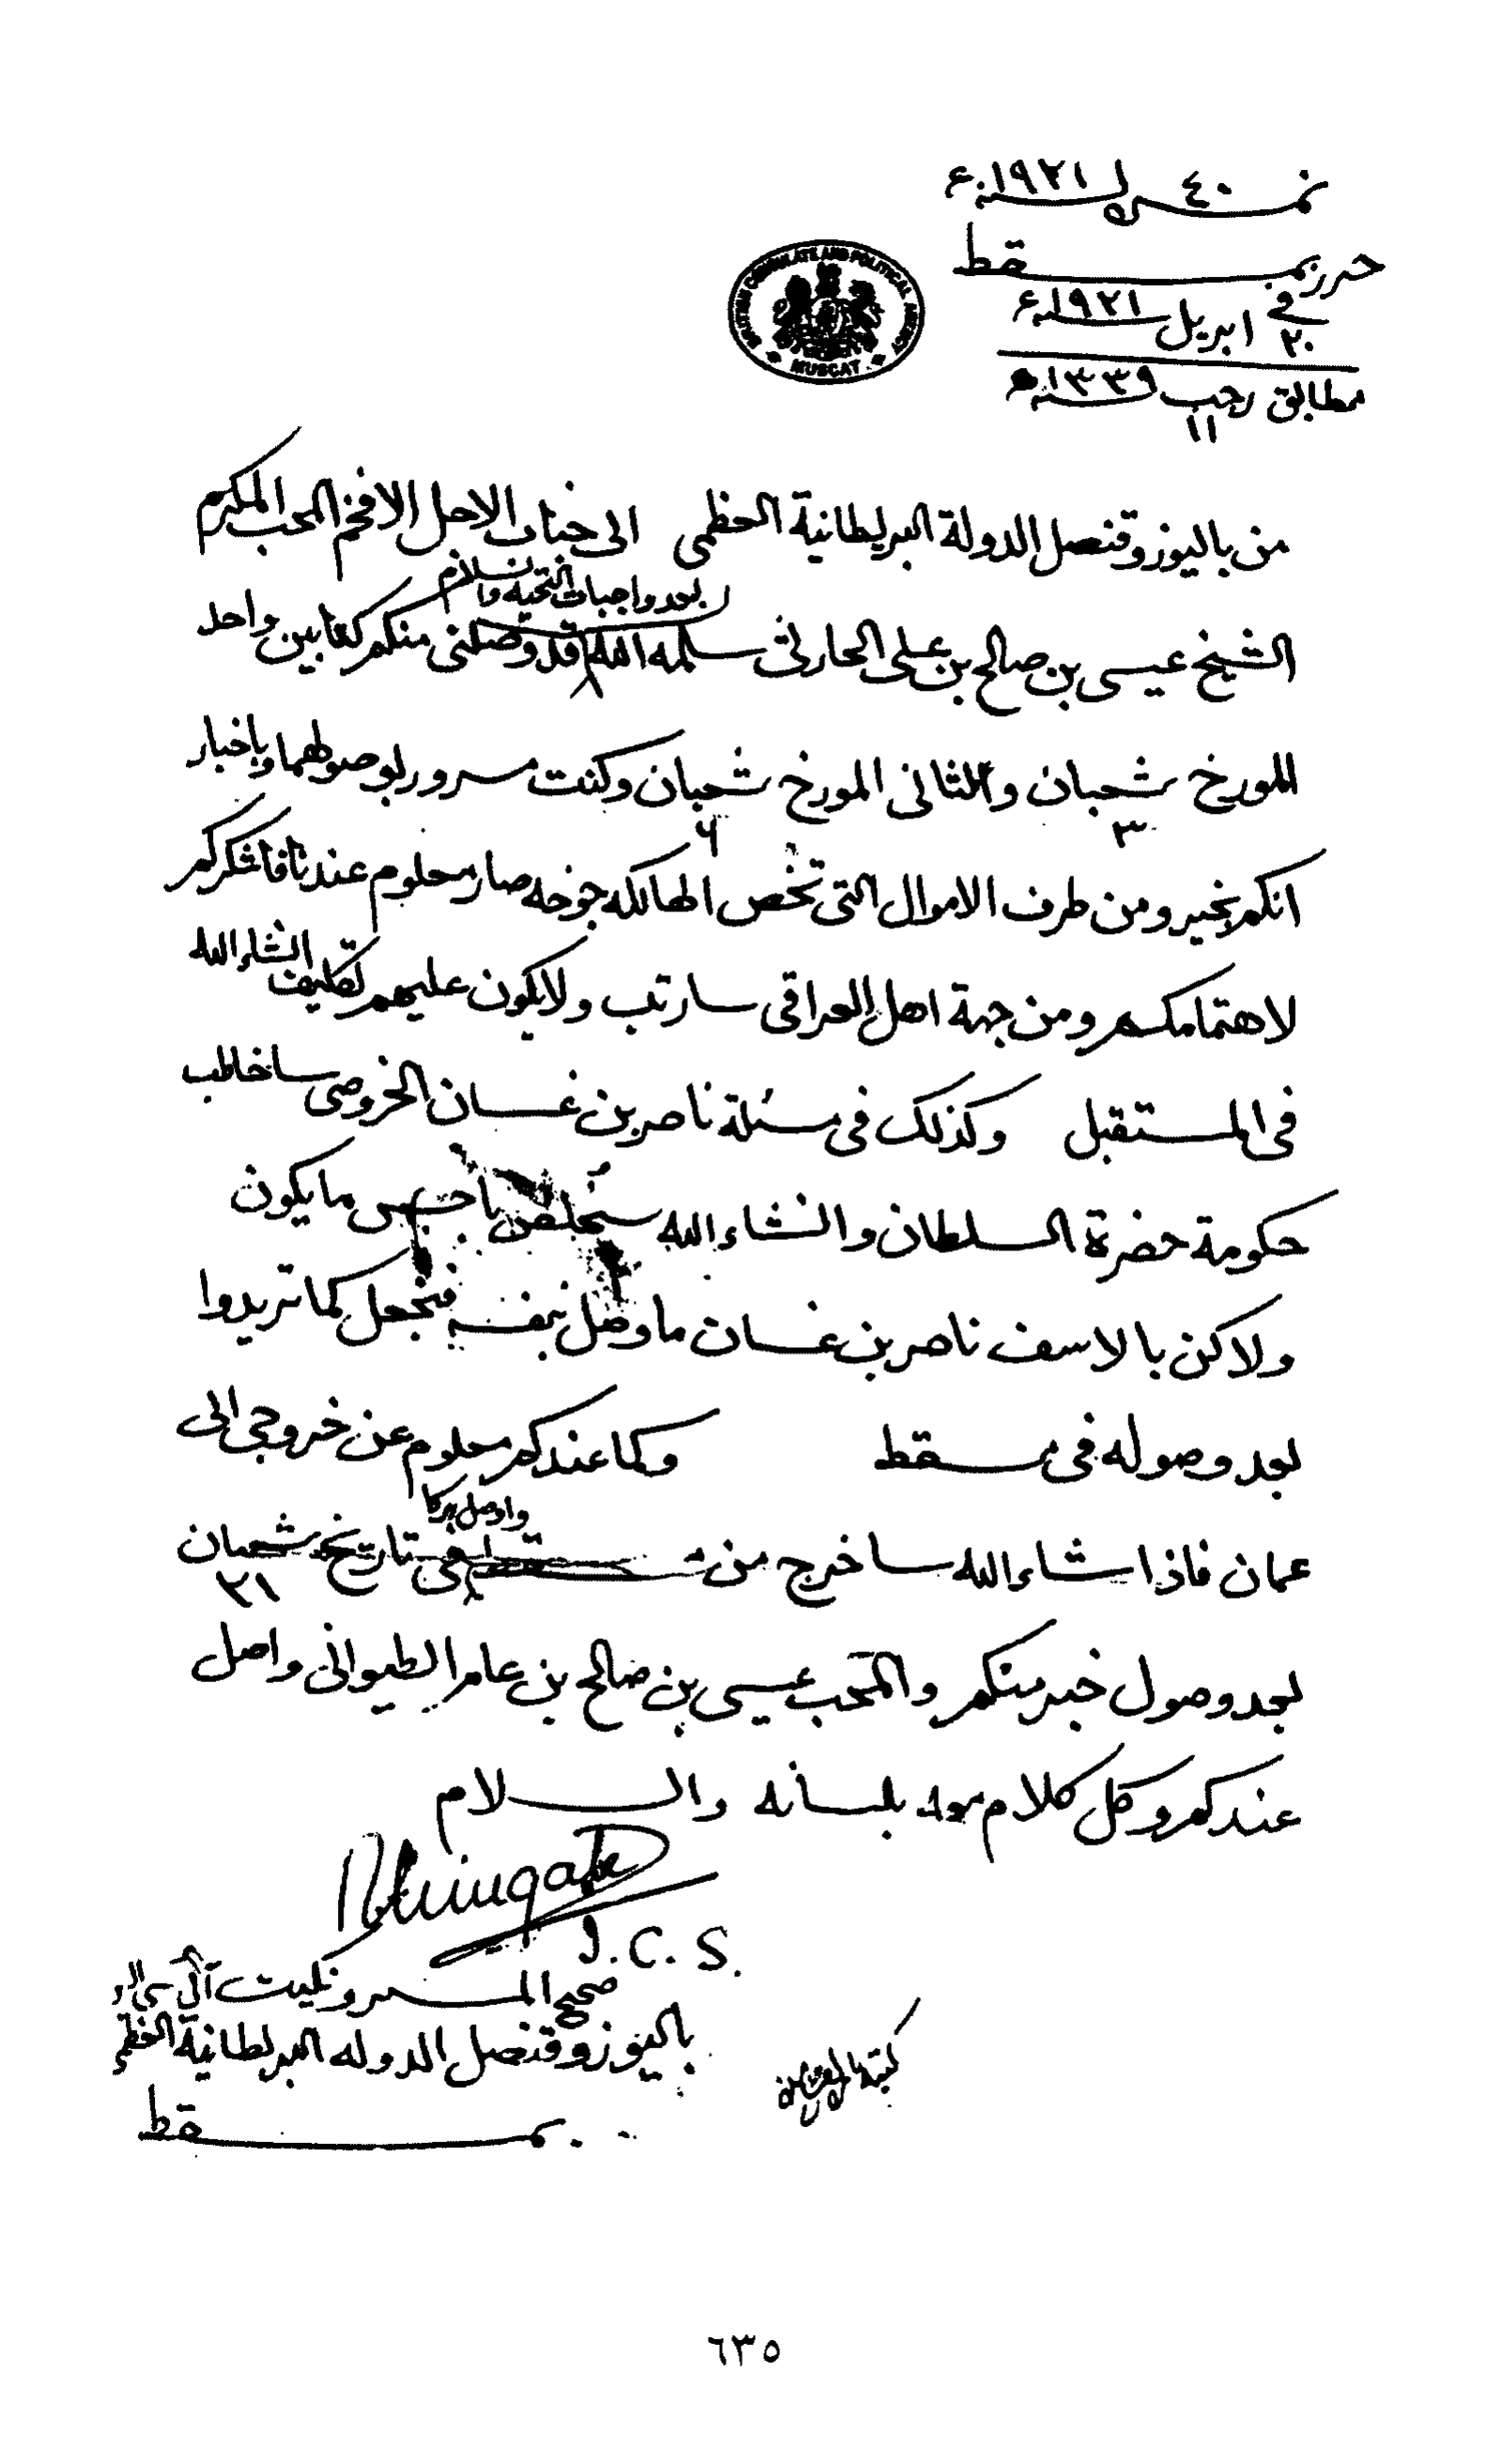 نمـ ٤٠ ـس لسنة ١٩٢١ء
حرر بمسقط
في ٢٠ ابريل سنة ١٩٢١ء
مطابق ١١ رجب سنة ١٣٣٩هـ
BRITISH CONSULATE AND POLITICAL AGENCY MUSCAT
من باليوز وقنصل الدولة البريطانية العظمى الى جناب الاجل الافخم المحب المكرم
بعد واجبات التحية والسلام
الشيخ عيسى بن صالح بن علي الحارثي سلمه الله قد وصلني منكم كتابين واحد
المورخ ٣ شعبان والثاني المورخ ٦ شعبان وكنت مسرور بوصولهما وباخبار
انكم بخير ومن طرف الاموال التي تخص الهالكه جوخه صار معلوم عندنا فاشكركم
لاهتمامكم ومن جهة اهل العراقي سارتب ولا يكون عليهم تكليف انشاء الله
في المستقبل وكذلك في مسئلة ناصر بن غسان الخروصي ساخاطب
حكومة حضرة السلطان وانشاء الله ستخلص باحسن ما يكون
ولاكن بالاسف ناصر بن غسان ما وصل بنفسه فنجعل كما تريدوا
بعد وصوله في مسقط وكما عندكم معلوم عن خروجي الى
واوصل بركا
عمان فاذا شاء الله ساخرج من مسقط في تاريخ ٢١ شعبان
بعد وصول خبر منكم والمحب عيسى بن صالح بن عامر الطيواني واصل
عندكم وكل كلام معه بلسانه والسلام
RWingate
I.C.S.
صحيح المستر ونكيت آئي سي اس
باليوز وقنصل الدوله البرطانية العظمى
بمسقط
٦٣٥